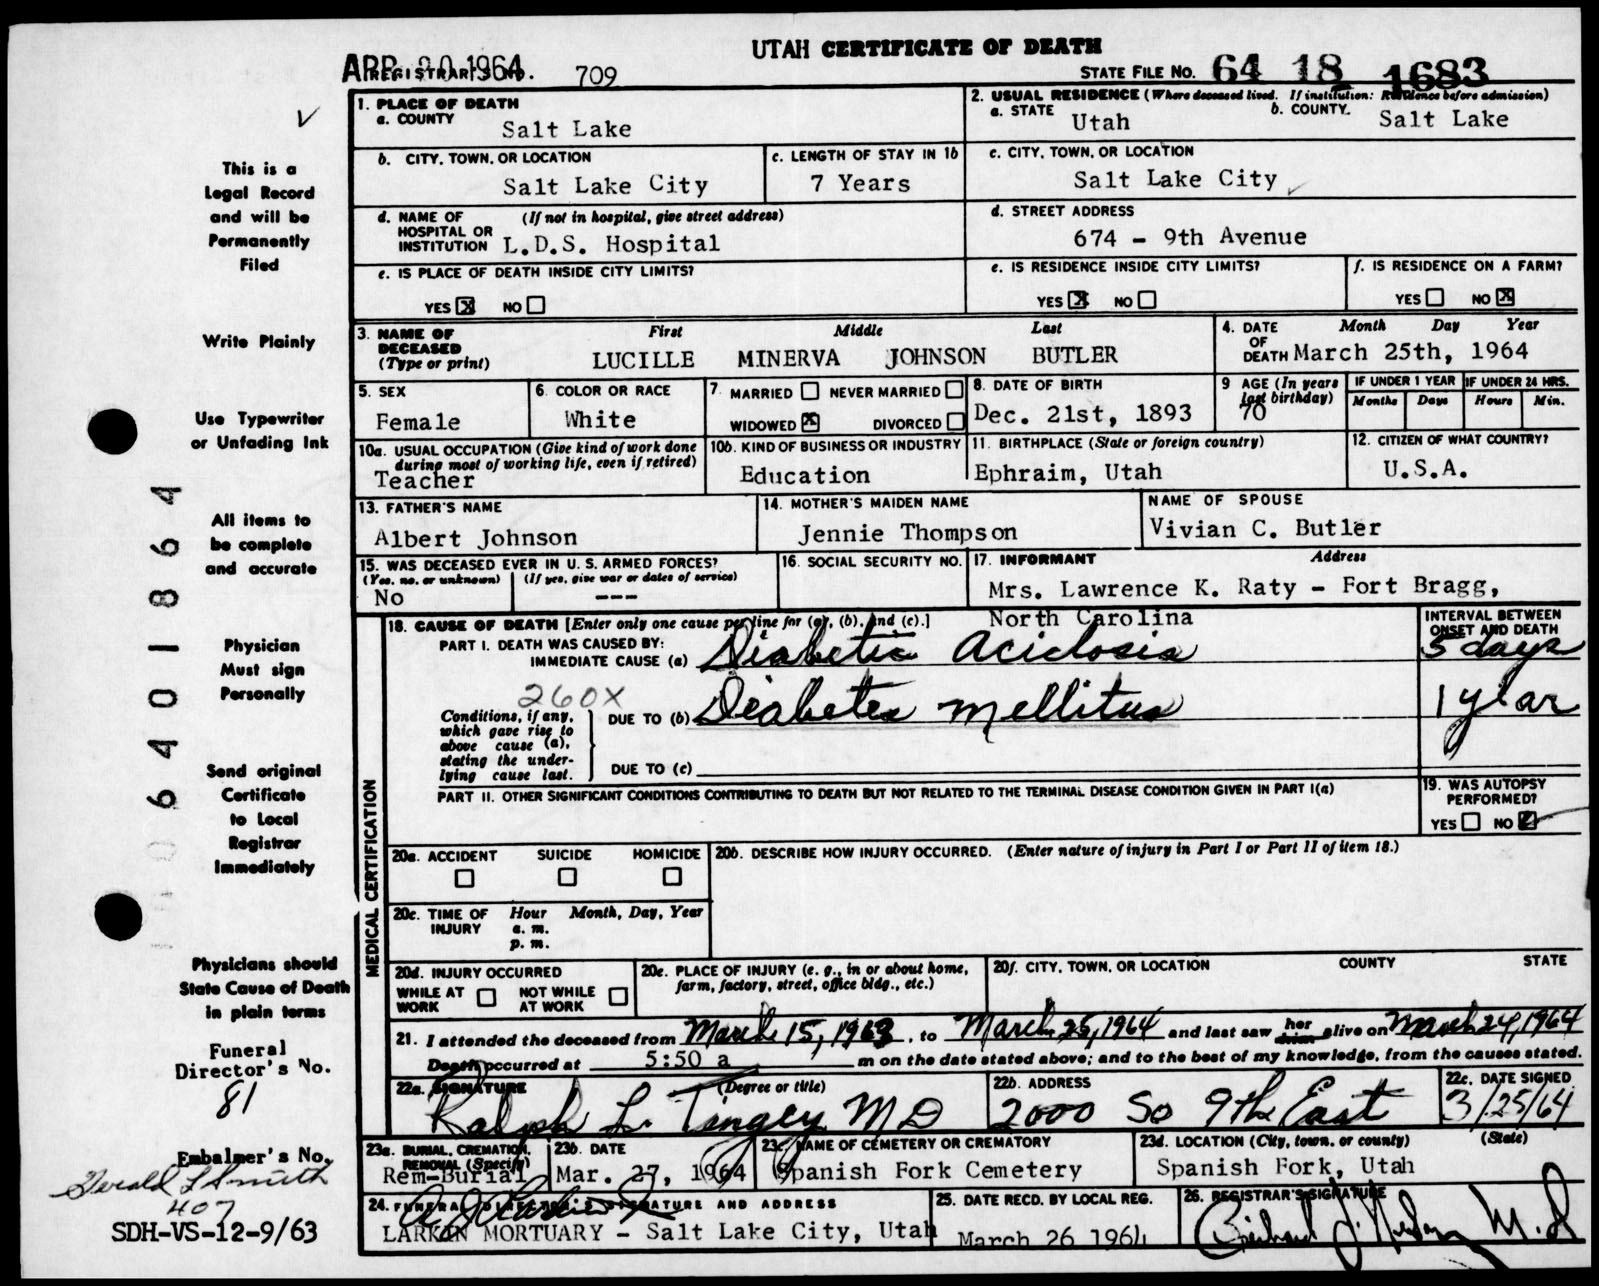 UTAH CERTIFICATE OF DEATH
APR 20 1964
REGISTRAR'S NO. 709
STATE FILE NO. 64 18 1683
1. PLACE OF DEATH
a. COUNTY Salt Lake
2. USUAL RESIDENCE (Where deceased lived. If institution: Residence before admission)
a. STATE Utah b. COUNTY. Salt Lake
b. CITY, TOWN, OR LOCATION Salt Lake City
c. LENGTH OF STAY IN 1b 7 Years
c. CITY, TOWN, OR LOCATION
Salt Lake City
d. NAME OF HOSPITAL OR INSTITUTION (If not in hospital, give street address)
L.D.S. Hospital
d. STREET ADDRESS
674 - 9th Avenue
e. IS PLACE OF DEATH INSIDE CITY LIMITS?
YES X NO
e. IS RESIDENCE INSIDE CITY LIMITS?
YES X NO
f. IS RESIDENCE ON A FARM?
YES NO X
3. NAME OF DECEASED (Type or print) First Middle Last
LUCILLE MINERVA JOHNSON BUTLER
4. DATE OF DEATH Month Day Year
March 25th, 1964
5. SEX
Female
6. COLOR OR RACE
White
7. MARRIED NEVER MARRIED
WIDOWED X DIVORCED
8. DATE OF BIRTH
Dec. 21st, 1893
9 AGE (In years last birthday)
70
IF UNDER 1 YEAR IF UNDER 24 HRS.
Months Days Hours Min.
10a. USUAL OCCUPATION (Give kind of work done during most of working life, even if retired)
Teacher
10b. KIND OF BUSINESS OR INDUSTRY
Education
11. BIRTHPLACE (State or foreign country)
Ephraim, Utah
12. CITIZEN OF WHAT COUNTRY?
U.S.A.
13. FATHER'S NAME
Albert Johnson
14. MOTHER'S MAIDEN NAME
Jennie Thompson
NAME OF SPOUSE
Vivian C. Butler
15. WAS DECEASED EVER IN U. S. ARMED FORCES?
(Yes, no, or unknown) (If yes, give war or dates of service)
No ---
16. SOCIAL SECURITY NO.
17. INFORMANT Address
Mrs. Lawrence K. Raty - Fort Bragg,
North Carolina
18. CAUSE OF DEATH [Enter only one cause per line for (a), (b), and (c).]
INTERVAL BETWEEN ONSET AND DEATH
PART I. DEATH WAS CAUSED BY:
IMMEDIATE CAUSE (a) Diabetic Acidosis 5 days
260X
Conditions, if any, which gave rise to above cause (a), stating the underlying cause last.
DUE TO (b) Diabetes mellitus 1 year
DUE TO (c)
PART II. OTHER SIGNIFICANT CONDITIONS CONTRIBUTING TO DEATH BUT NOT RELATED TO THE TERMINAL DISEASE CONDITION GIVEN IN PART I(a)
19. WAS AUTOPSY PERFORMED?
YES NO
MEDICAL CERTIFICATION
20a. ACCIDENT SUICIDE HOMICIDE
20b. DESCRIBE HOW INJURY OCCURRED. (Enter nature of injury in Part I or Part II of item 18.)
20c. TIME OF INJURY Hour Month, Day, Year
a. m.
p. m.
20d. INJURY OCCURRED
WHILE AT WORK NOT WHILE AT WORK
20e. PLACE OF INJURY (e. g., in or about home, farm, factory, street, office bldg., etc.)
20f. CITY, TOWN, OR LOCATION COUNTY STATE
21. I attended the deceased from March 15, 1963, to March 25, 1964 and last saw her him alive on March 24, 1964
Death occurred at 5:50 a m on the date stated above; and to the best of my knowledge, from the causes stated.
22a. SIGNATURE (Degree or title)
Ralph L. Tingey MD
22b. ADDRESS
2000 So 9th East
22c. DATE SIGNED
3/25/64
23a. BURIAL, CREMATION, REMOVAL (Specify)
Rem-Burial
23b. DATE
Mar. 27, 1964
23c. NAME OF CEMETERY OR CREMATORY
Spanish Fork Cemetery
23d. LOCATION (City, town, or county) (State)
Spanish Fork, Utah
24. FUNERAL DIRECTOR'S SIGNATURE AND ADDRESS
LARKIN MORTUARY - Salt Lake City, Utah
25. DATE RECD. BY LOCAL REG.
March 26 1964
26. REGISTRAR'S SIGNATURE
M.D
This is a
Legal Record
and will be
Permanently
Filed
Write Plainly
Use Typewriter
or Unfading Ink
All items to
be complete
and accurate
Physician
Must sign
Personally
Send original
Certificate
to Local
Registrar
Immediately
Physicians should
State Cause of Death
in plain terms
Funeral
Director's No.
81
Embalmer's No.
Gerald L Smith
407
SDH-VS-12-9/63
0 6 4 0 1 8 6 4